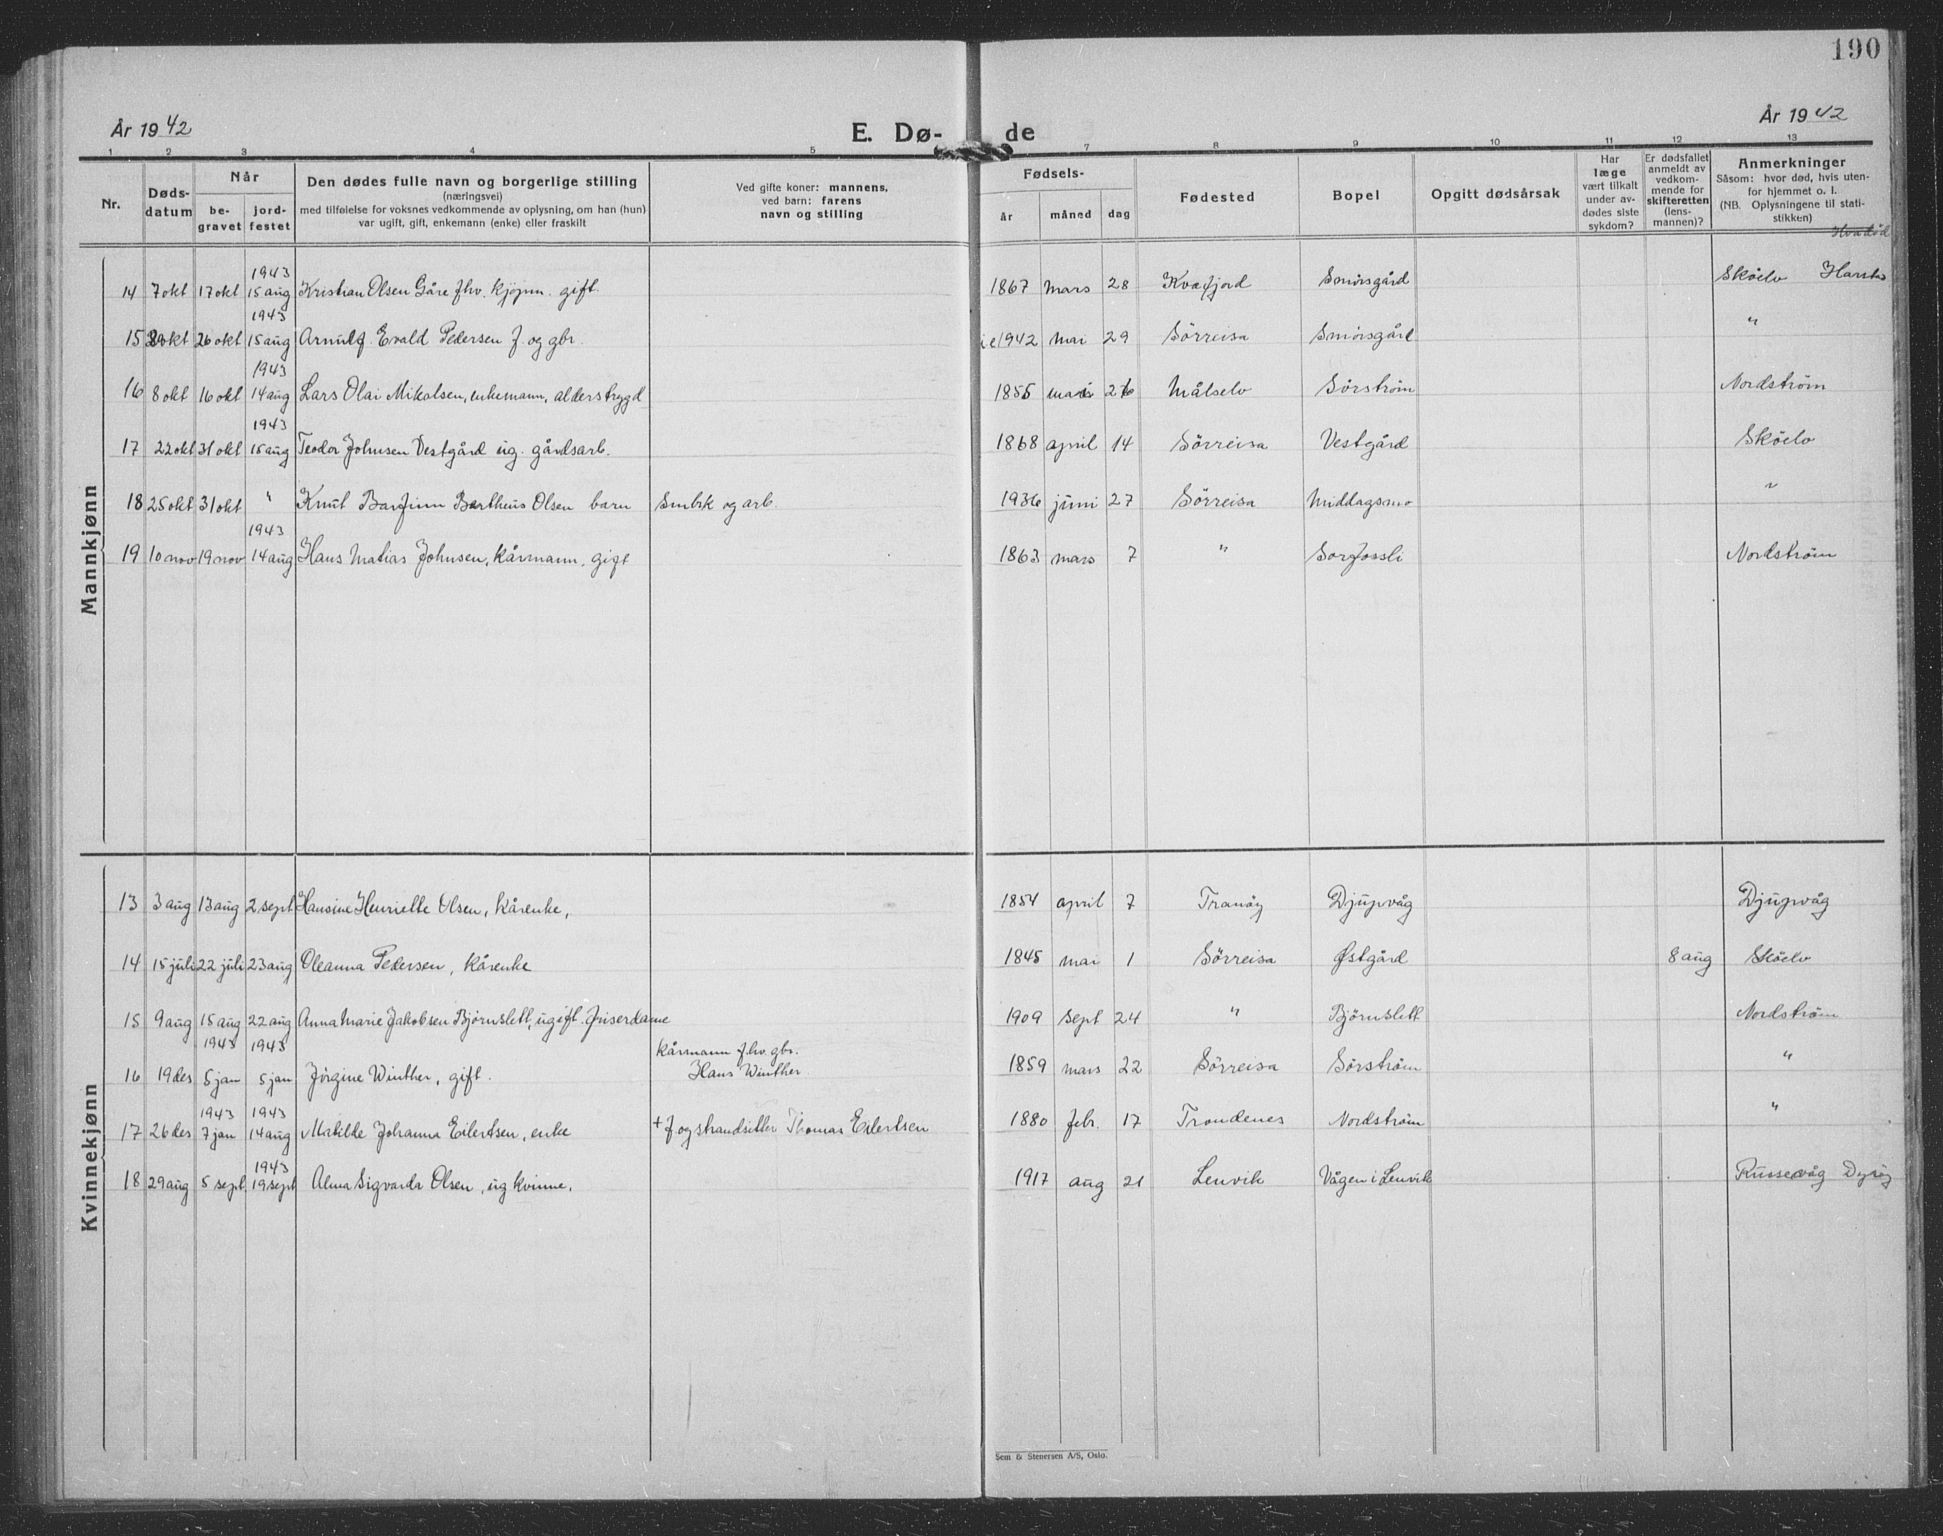 190
År 1942
E. Dø- de
År 1942
1 2 3 4 5 7 8 9 10 11 12 13
Nr.
Døds-
datum
Når
be-
gravet
jord-
festet
Den dødes fulle navn og borgerlige stilling
(næringsvei)
med tilføielse for voksnes vedkommende av oplysning, om han (hun)
var ugift, gift, enkemann (enke) eller fraskilt
Ved gifte koner: mannens,
ved barn: farens
navn og stilling
Fødsels-
år måned dag
Fødested
Bopel
Opgitt dødsårsak
Har
læge
vært tilkalt
under av-
dødes siste
sykdom?
Er dødsfallet
anmeldt av
vedkom-
mende for
skifteretten
(lens-
mannen)?
Anmerkninger
Såsom: hvor død, hvis uten-
for hjemmet o. l.
(NB. Oplysningene til stati-
stikken)
Mannkjønn
1943
14 7 okt 17 okt 15 aug Kristian Olsen Gåre fhv. kjøpm. gift. 1867 mars 28 Kvæfjord Smørsgård Skøelv
1943
15 okt 26 okt 15 aug Arnulf Evald Pedersen f. og gbr. 1942 mai 29 Sørreisa Smørsgård "
1943
16 8 okt 16 okt 14 aug Lars Olai Mikalsen, enkemann, alderstrygd 1855 26 Målselv Sørstrøm Nordstrøm
1943
17 22 okt 31 okt 15 aug Teodor Johnsen Vestgård ug. gårdsarb. 1868 april 14 Sørreisa Vestgård Skøelv
18 25 okt 31 okt " Knut Barfinn Bertheus Olsen barn Smbrk og arb. 1936 juni 27 Sørreisa Middagsmo "
1943
19 10 nov 19 nov 14 aug Hans Matias Johnsen, kårmann, gift 1863 mars 7 " Sørfossli Nordstrøm
Kvinnekjønn
13 3 aug 13 aug 2. sept Hansine Henriette Olsen, kårenke, 1854 april 7 Tranøy Djupvåg Djupvåg
14 15 juli 22 juli 23 aug Oleanna Pedersen, kårenke 1845 mai 1 Sørreisa Østgård 8 aug Skøelv
15 9 aug 15 aug 22 aug Anna Marie Jakobsen Bjørnslett, ugift. friserdame 1909 sept 24 " Bjørnslett Nordstrøm
1943 1943 kårmann f.hv. gbr.
16 19 des 5 jan 5 jan Jørgine Winther, gift. Hans Winther 1859 mars 22 Sørreisa Sørstrøm "
1943 1943
17 26 des 7 jan 14 aug Matilde Johanna Eilertsen, enke + f og strandsitter Thomas Eilertsen 1880 febr. 17 Trondenes Nordstrøm "
1943
18 29 aug 5 sept 19 sept Alma Sigvarda Olsen, ug kvinne, 1917 aug 21 Lenvik Vågen i Lenvik Russevåg Dyrøy
Sem & Stenersen A/S, Oslo.